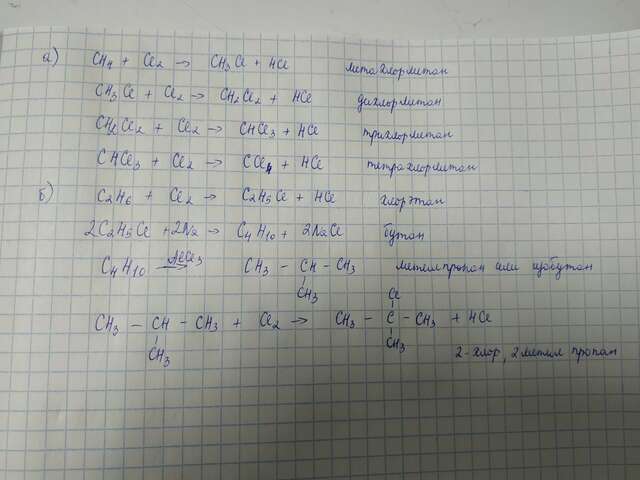 а) CH4 + Cl2 → CH3Cl + HCl метахлорметан
CH3Cl + Cl2 → CH2Cl2 + HCl дихлорметан
CH2Cl2 + Cl2 → CHCl3 + HCl трихлорметан
CHCl3 + Cl2 → CCl4 + HCl тетрахлорметан
б) C2H6 + Cl2 → C2H5Cl + HCl хлорэтан
2C2H5Cl + 2Na → C4H10 + 2NaCl бутан
AlCl3
C4H10 → CH3 – CH – CH3 метилпропан или изобутан
CH3
Cl
CH3 – CH – CH3 + Cl2 → CH3 – C – CH3 + HCl
CH3 CH3
2-хлор, 2метил пропан